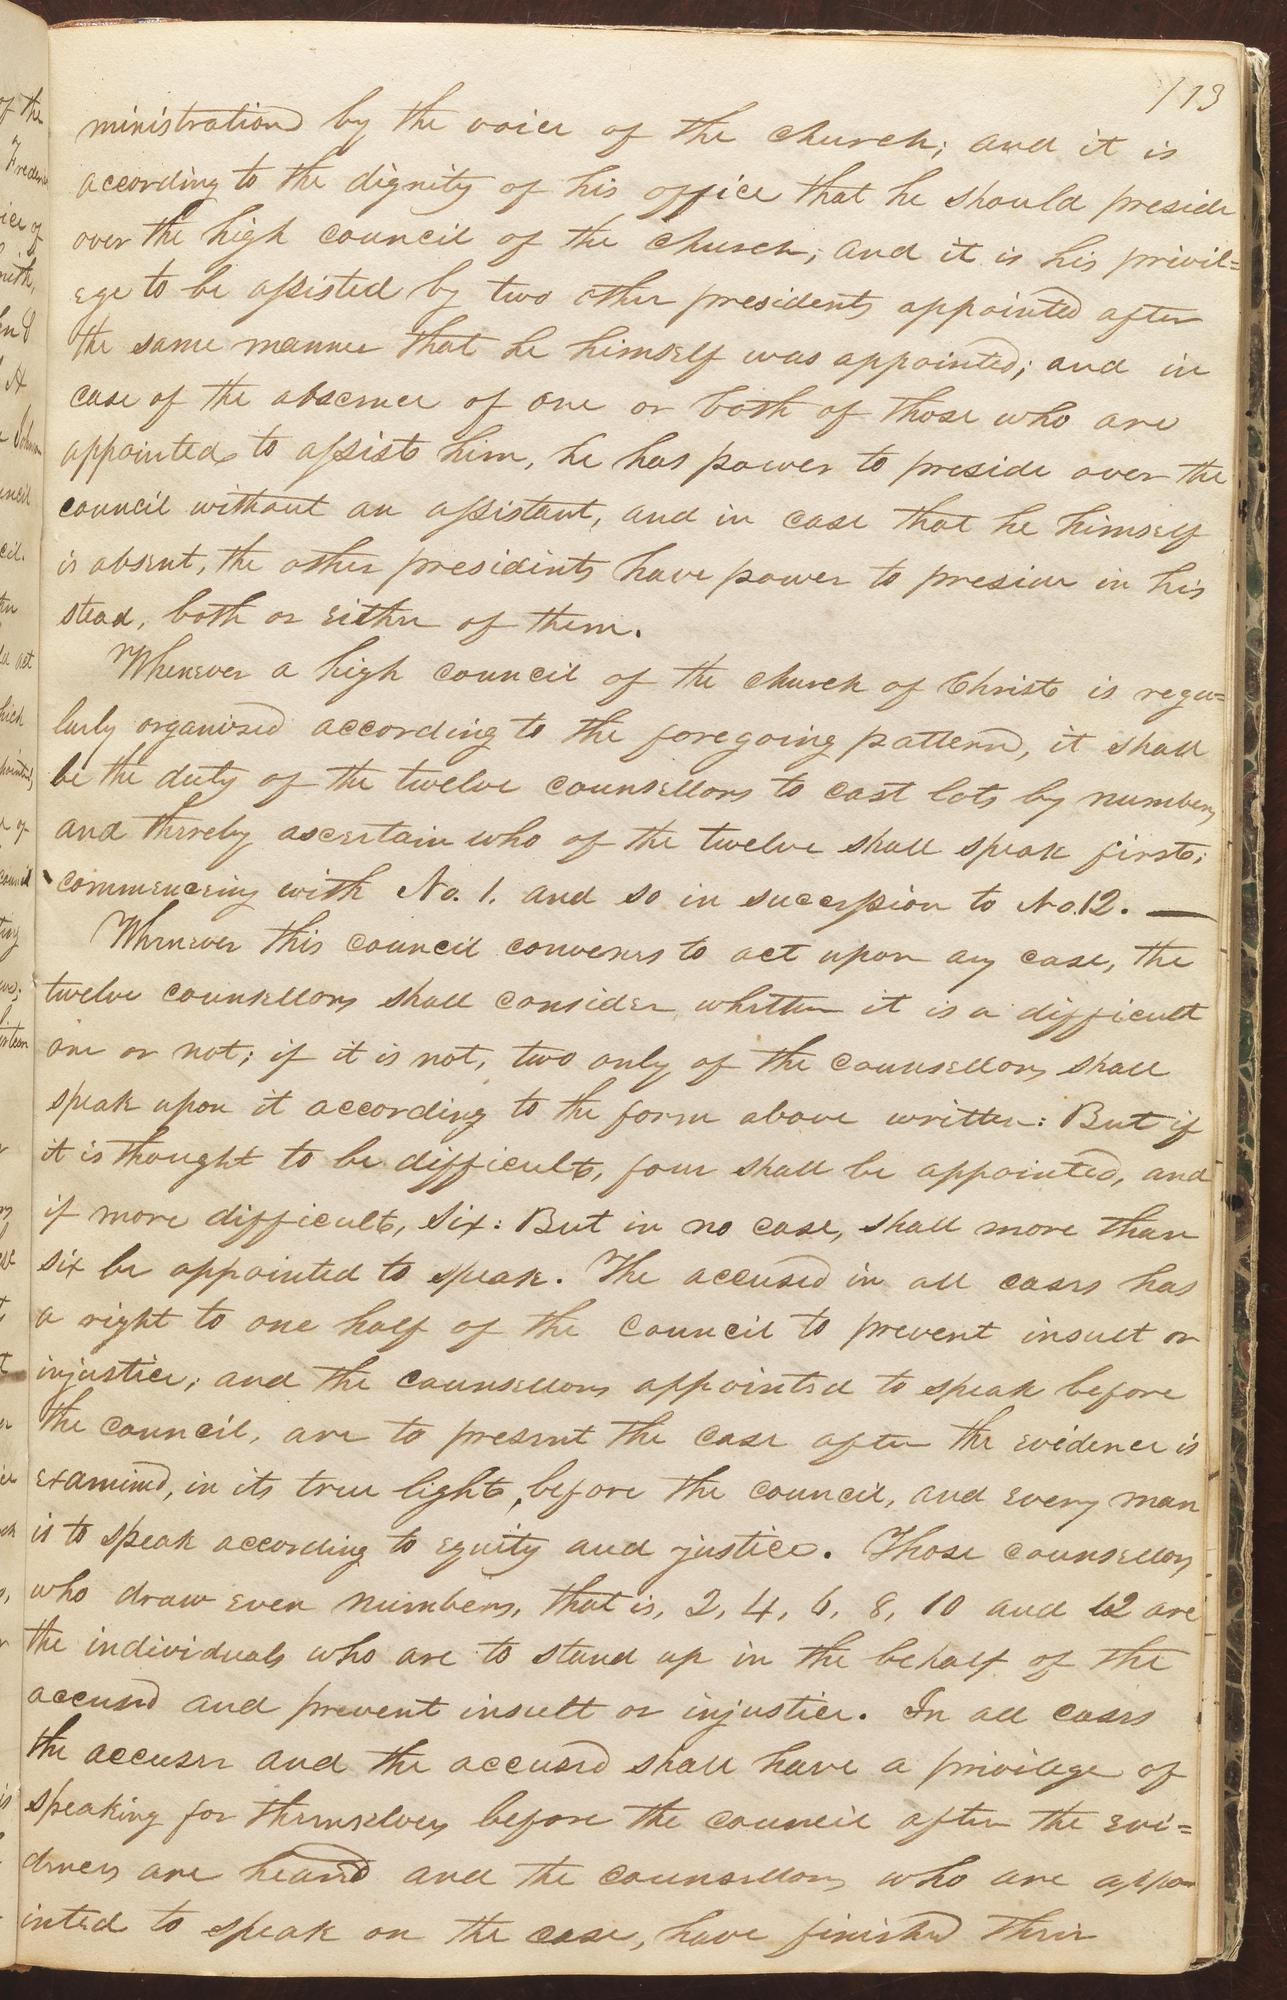 113
ministration by the voice of the church; and it is
according to the dignity of his office that he should preside
over the high council of the church; and it is his privil=
ege to be assisted by two other presidents appointed after
the same manner that he himself was appointed; and in
case of the absence of one or both of those who are
appointed to assist him, he has power to preside over the
council without an assistant, and in case that he himself
is absent, the other presidents have power to preside in his
stead, both or either of them.
Whenever a high council of the church of Christ is regu=
larly organized according to the foregoing pattern, it shall
be the duty of the twelve counsellors to cast lots by numbers
and thereby ascertain who of the twelve shall speak first;
commencing with No. 1. and so in succession to No.12. —
Whenever this council convenes to act upon any case, the
twelve counsellors shall consider whether it is a difficult
one or not; if it is not, two only of the counsellors shall
speak upon it according to the form above written: But if
it is thought to be difficult, four shall be appointed, and
if more difficult, six: But in no case, shall more than
six be appointed to speak. The accused in all cases has
a right to one half of the council to prevent insult or
injustice; and the counsellors appointed to speak before
the council, are to present the case after the evidence is
examined, in its true light, before the council, and every man
is to speak according to equity and justice. Those counsellors
who draw even numbers, that is, 2, 4, 6, 8, 10 and 12 are
the individuals who are to stand up in the behalf of the
accused and prevent insult or injustice. In all cases
the accuser and the accused shall have a privilege of
speaking for themselves before the council after the evi=
dences are heard and the counsellors who are appo
inted to speak on the case, have finished their